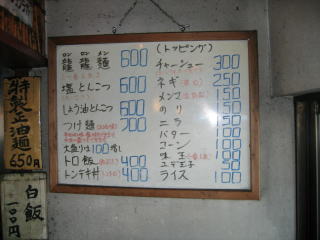 ロン ロン メン
龍龍麺 600
塩とんこつ 600
しょう油とんこつ 600
つけ麺 700
大盛りは100増し
トロ飯 400
トンテキ丼 400
(トッピング)
チャーシュー 300
ネギ 250
メンマ 150
のり 150
ニラ 100
バター 100
コーン 100
味玉 100
ユデ玉子 50
ライス 100
特製正油麺
650円
白飯
一〇〇円